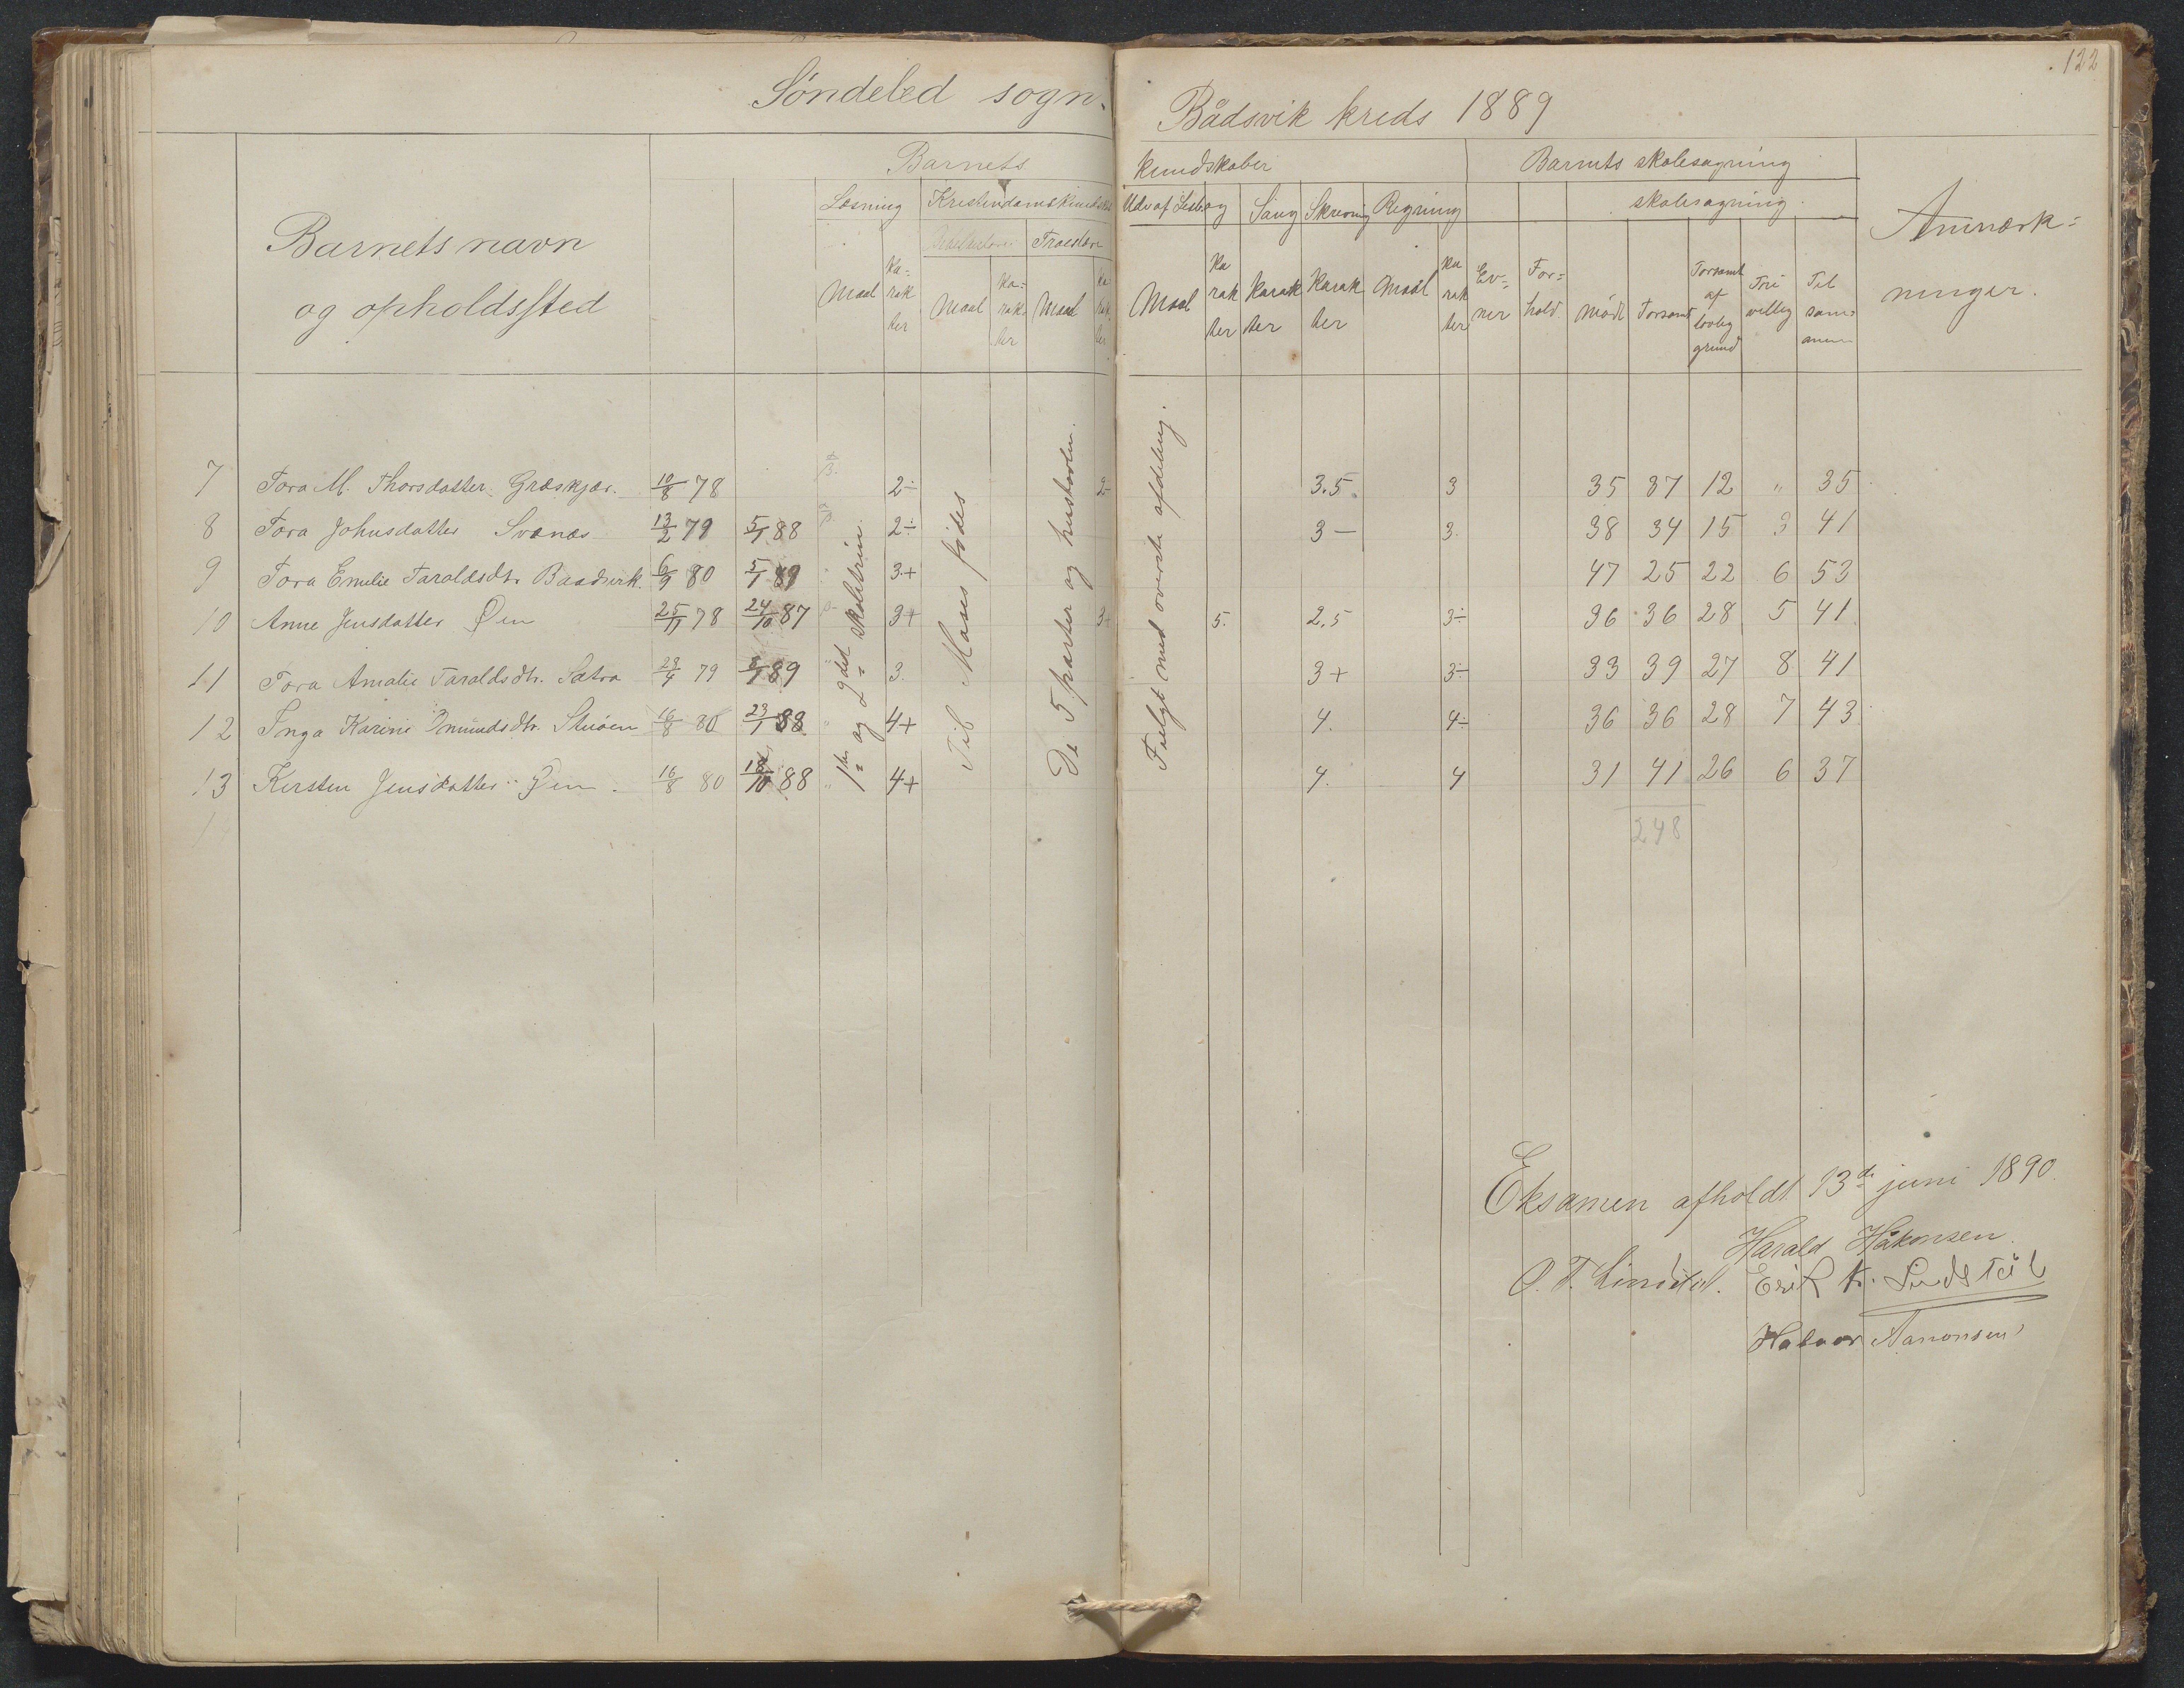 122
Søndeled sogn. Bådsvik kreds 1889
Barnets kundskaber Barnets skolesøgning
Læsning Kristendomskundskab Udv af Læsebog Sang Skrivning Regning skolesøgning
Barnets navn og opholdssted
Troeslære
Anmærkninger.
Maal Karakter Maal Karakter Maal Karakter Maal Karakter Karakter Karakter Maal Karakter Evner Forhold mødt Forsømt Forsømt af lovlig grund Frivillig Tilsammen
7 Tora M. Thorsdatter Græskjær. 10/8 78 2÷ 2÷ 3.5 3 35 37 12 " 35
8 Tora Johnsdatter Svanæs 13/2 79 5/1 88 2÷ 3— 3. 38 34 15 3 41
9 Tora Emelie Taraldsdtr. Baadsvik. 6/9 80 5/1 89 3+ 47 25 22 6 53
10 Anne Jensdatter Øen 25/11 78 24/10 87 3+ 3+ 5. 2,5 3÷ 36 36 28 5 41
11 Tora Amalie Taraldsdtr. Sætra 23/4 79 89 " 3. 3+ 3÷ 33 39 27 8 41
12 Inga Karine Omundsdtr. Stuøen 16/8 80 23/1 88 " 4+ 4. 4÷ 36 36 28 7 43
13 Kirsten Jensdatter Øen. 16/8 80 18/10 88 " 4+ 4. 4 31 41 26 6 37
14
248
1ste og 2det skoletrin.
Til Moses fødes
De 5 parter og hustavlen.
Fulgt med øverste afdeling.
Eksamen afholdt 13de juni 1890.
Harald Håkonsen.
O. T. Lindstøl. Erik K. Lindstøl
Halvor Aanonsen